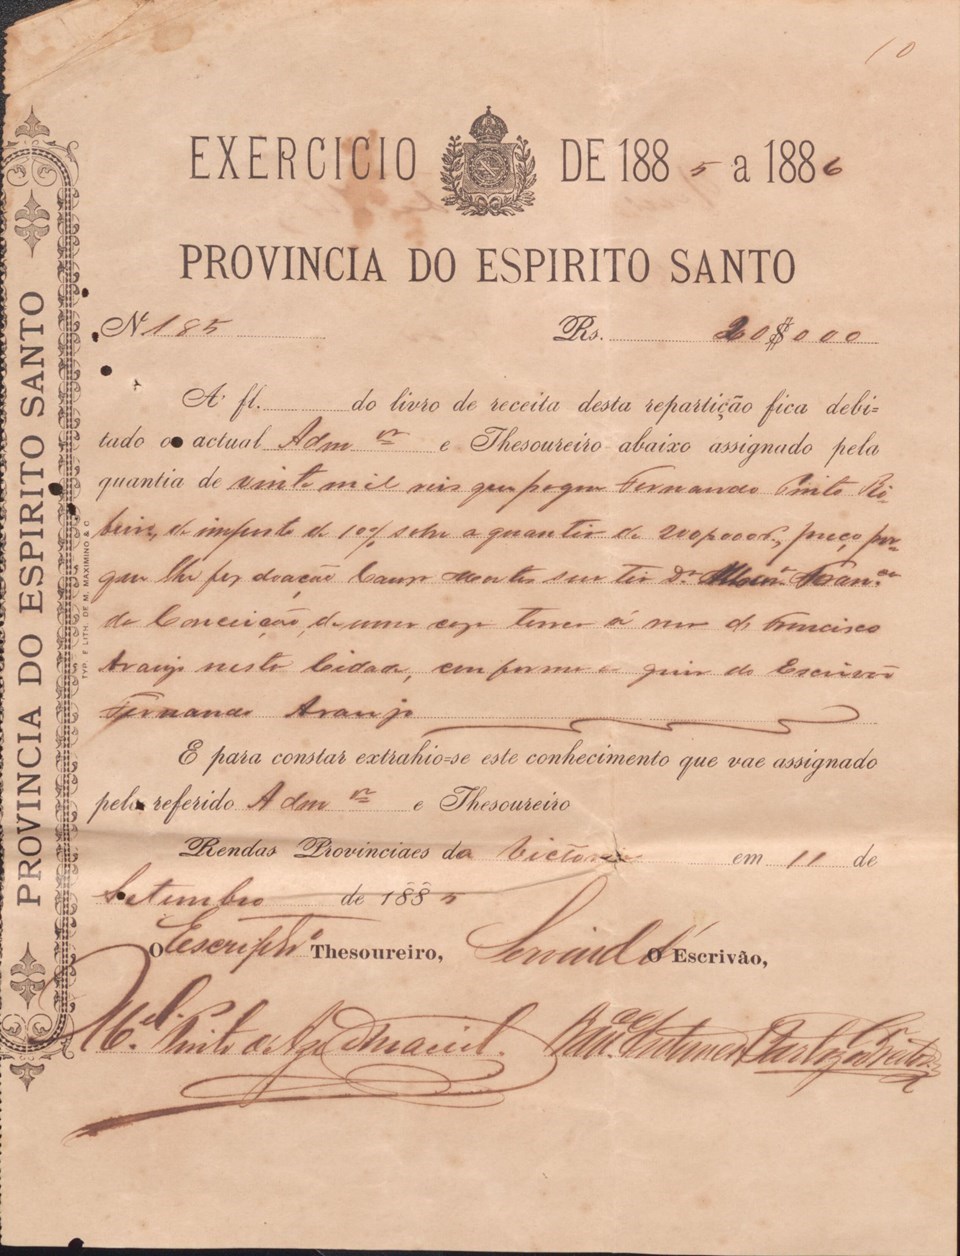 10
EXERCICIO DE 1885 a 1886
PROVINCIA DO ESPIRITO SANTO
N 185 Rs. 20$000
A' fl. do livro de receita desta repartição fica debi=
tado o actual Adm or e Thesoureiro abaixo assignado pela
quantia de vinte mil reis que pagou Fernando Pinto Ri-
beiro, de imposto de 10% sobre a quantia de 200,000 rs, preço por
que lhe fez doação sua tia D.
da Conceição, de uma casa terrea á rua de Francisco
Araujo nesta Cidade, conforme a guia do Escrivão
Fernando Araujo
E para constar extrahio=se este conhecimento que vae assignado
pelo referido Adm or e Thesoureiro
Rendas Provinciaes da Victoria em 11 de
Setembro de 1885
O Escriptr.o Thesoureiro, Servindo d' O Escrivão,
M.el Pinto de Maciel.
PROVINCIA DO ESPIRITO SANTO
TYP. E LITH. DE M. MAXIMINO & C.